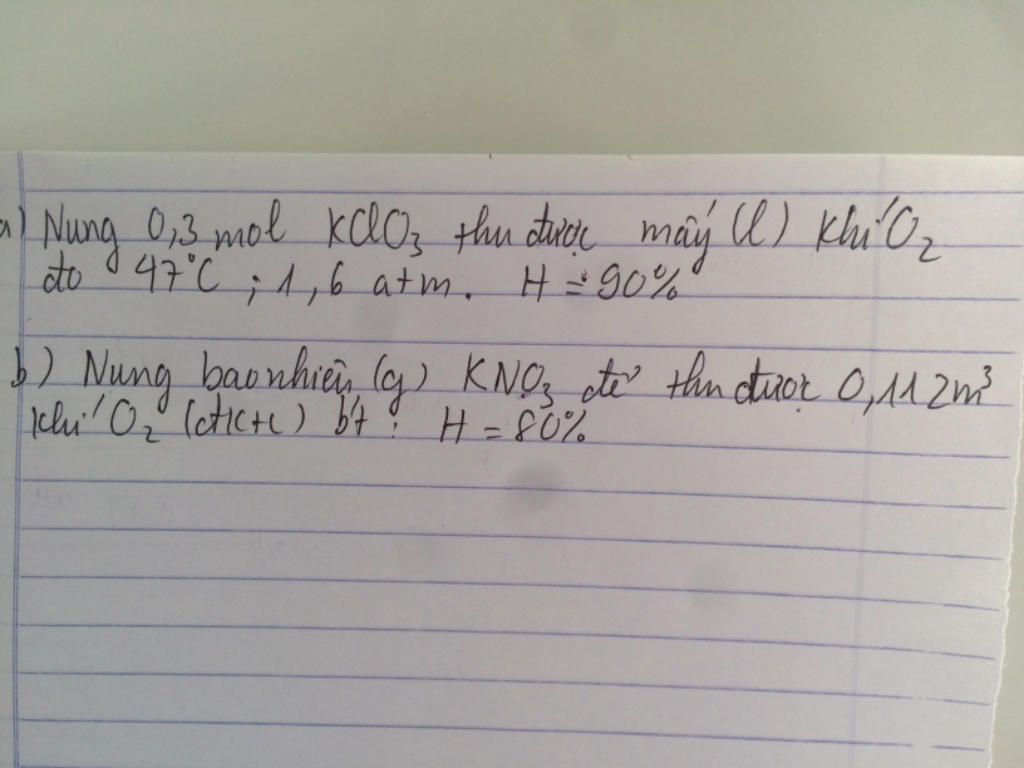 a) Nung 0,3 mol KClO3 thu được mấy (l) khí O2
đo 47°C ; 1,6 atm. H = 90%
b) Nung bao nhiêu (g) KNO3 để thu được 0,112m³
khí O2 (đktc) bt : H = 80%